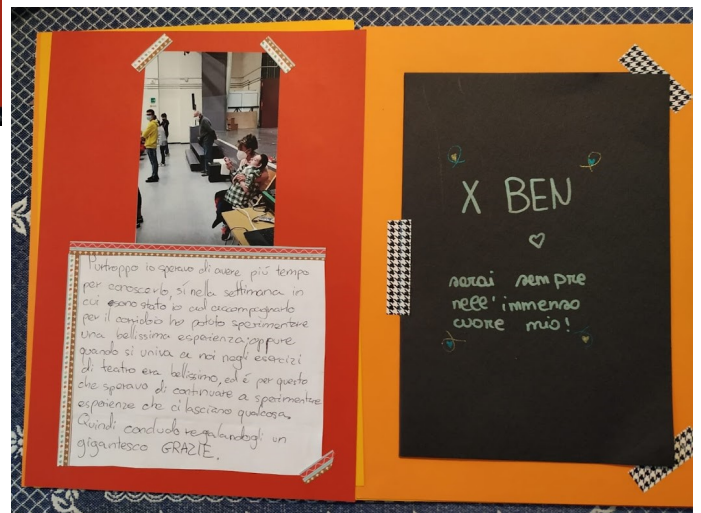 Purtroppo io speravo di avere più tempo
per conoscerlo, sí nella settimana in
cui sono stato io ad accompagnarlo
per il corridoio ho potuto sperimentare
una bellissima esperienza; oppure
quando si univa a noi negli esercizi
di teatro era bellissimo, ed é per questo
che speravo di continuare a sperimentare
esperienze che ci lasciano qualcosa.
Quindi concludo regalandogli un
gigantesco GRAZIE.
X BEN
sarai sempre
nell'immenso
cuore mio!